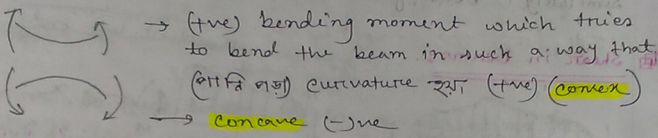 → (+ve) bending moment which tries
to bend the beam in such a way that
curvature হয়, (+ve) (convex)
→ concave (-)ve